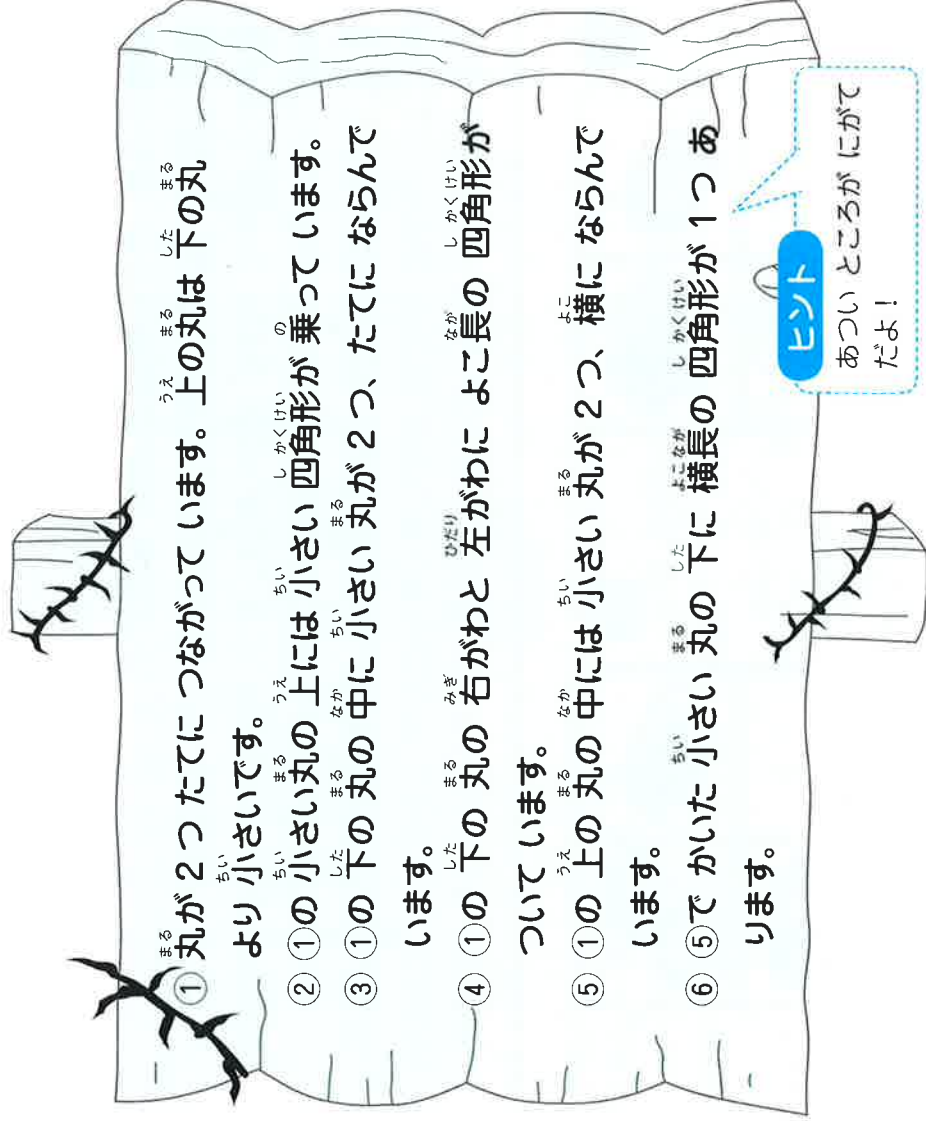 ① 丸が２つ たてに つながって います。上の丸は 下の丸
より 小さいです。
② ①の 小さい丸の 上には 小さい 四角形が 乗って います。
③ ①の 下の 丸の 中に 小さい 丸が ２つ、たてに ならんで
います。
④ ①の 下の 丸の 右がわと 左がわに よこ長の 四角形が
ついて います。
⑤ ①の 上の 丸の 中には 小さい 丸が ２つ、横に ならんで
います。
⑥ ⑤で かいた 小さい 丸の 下に 横長の 四角形が １つ あ
ります。
ヒント
あつい ところが にがて
だよ！